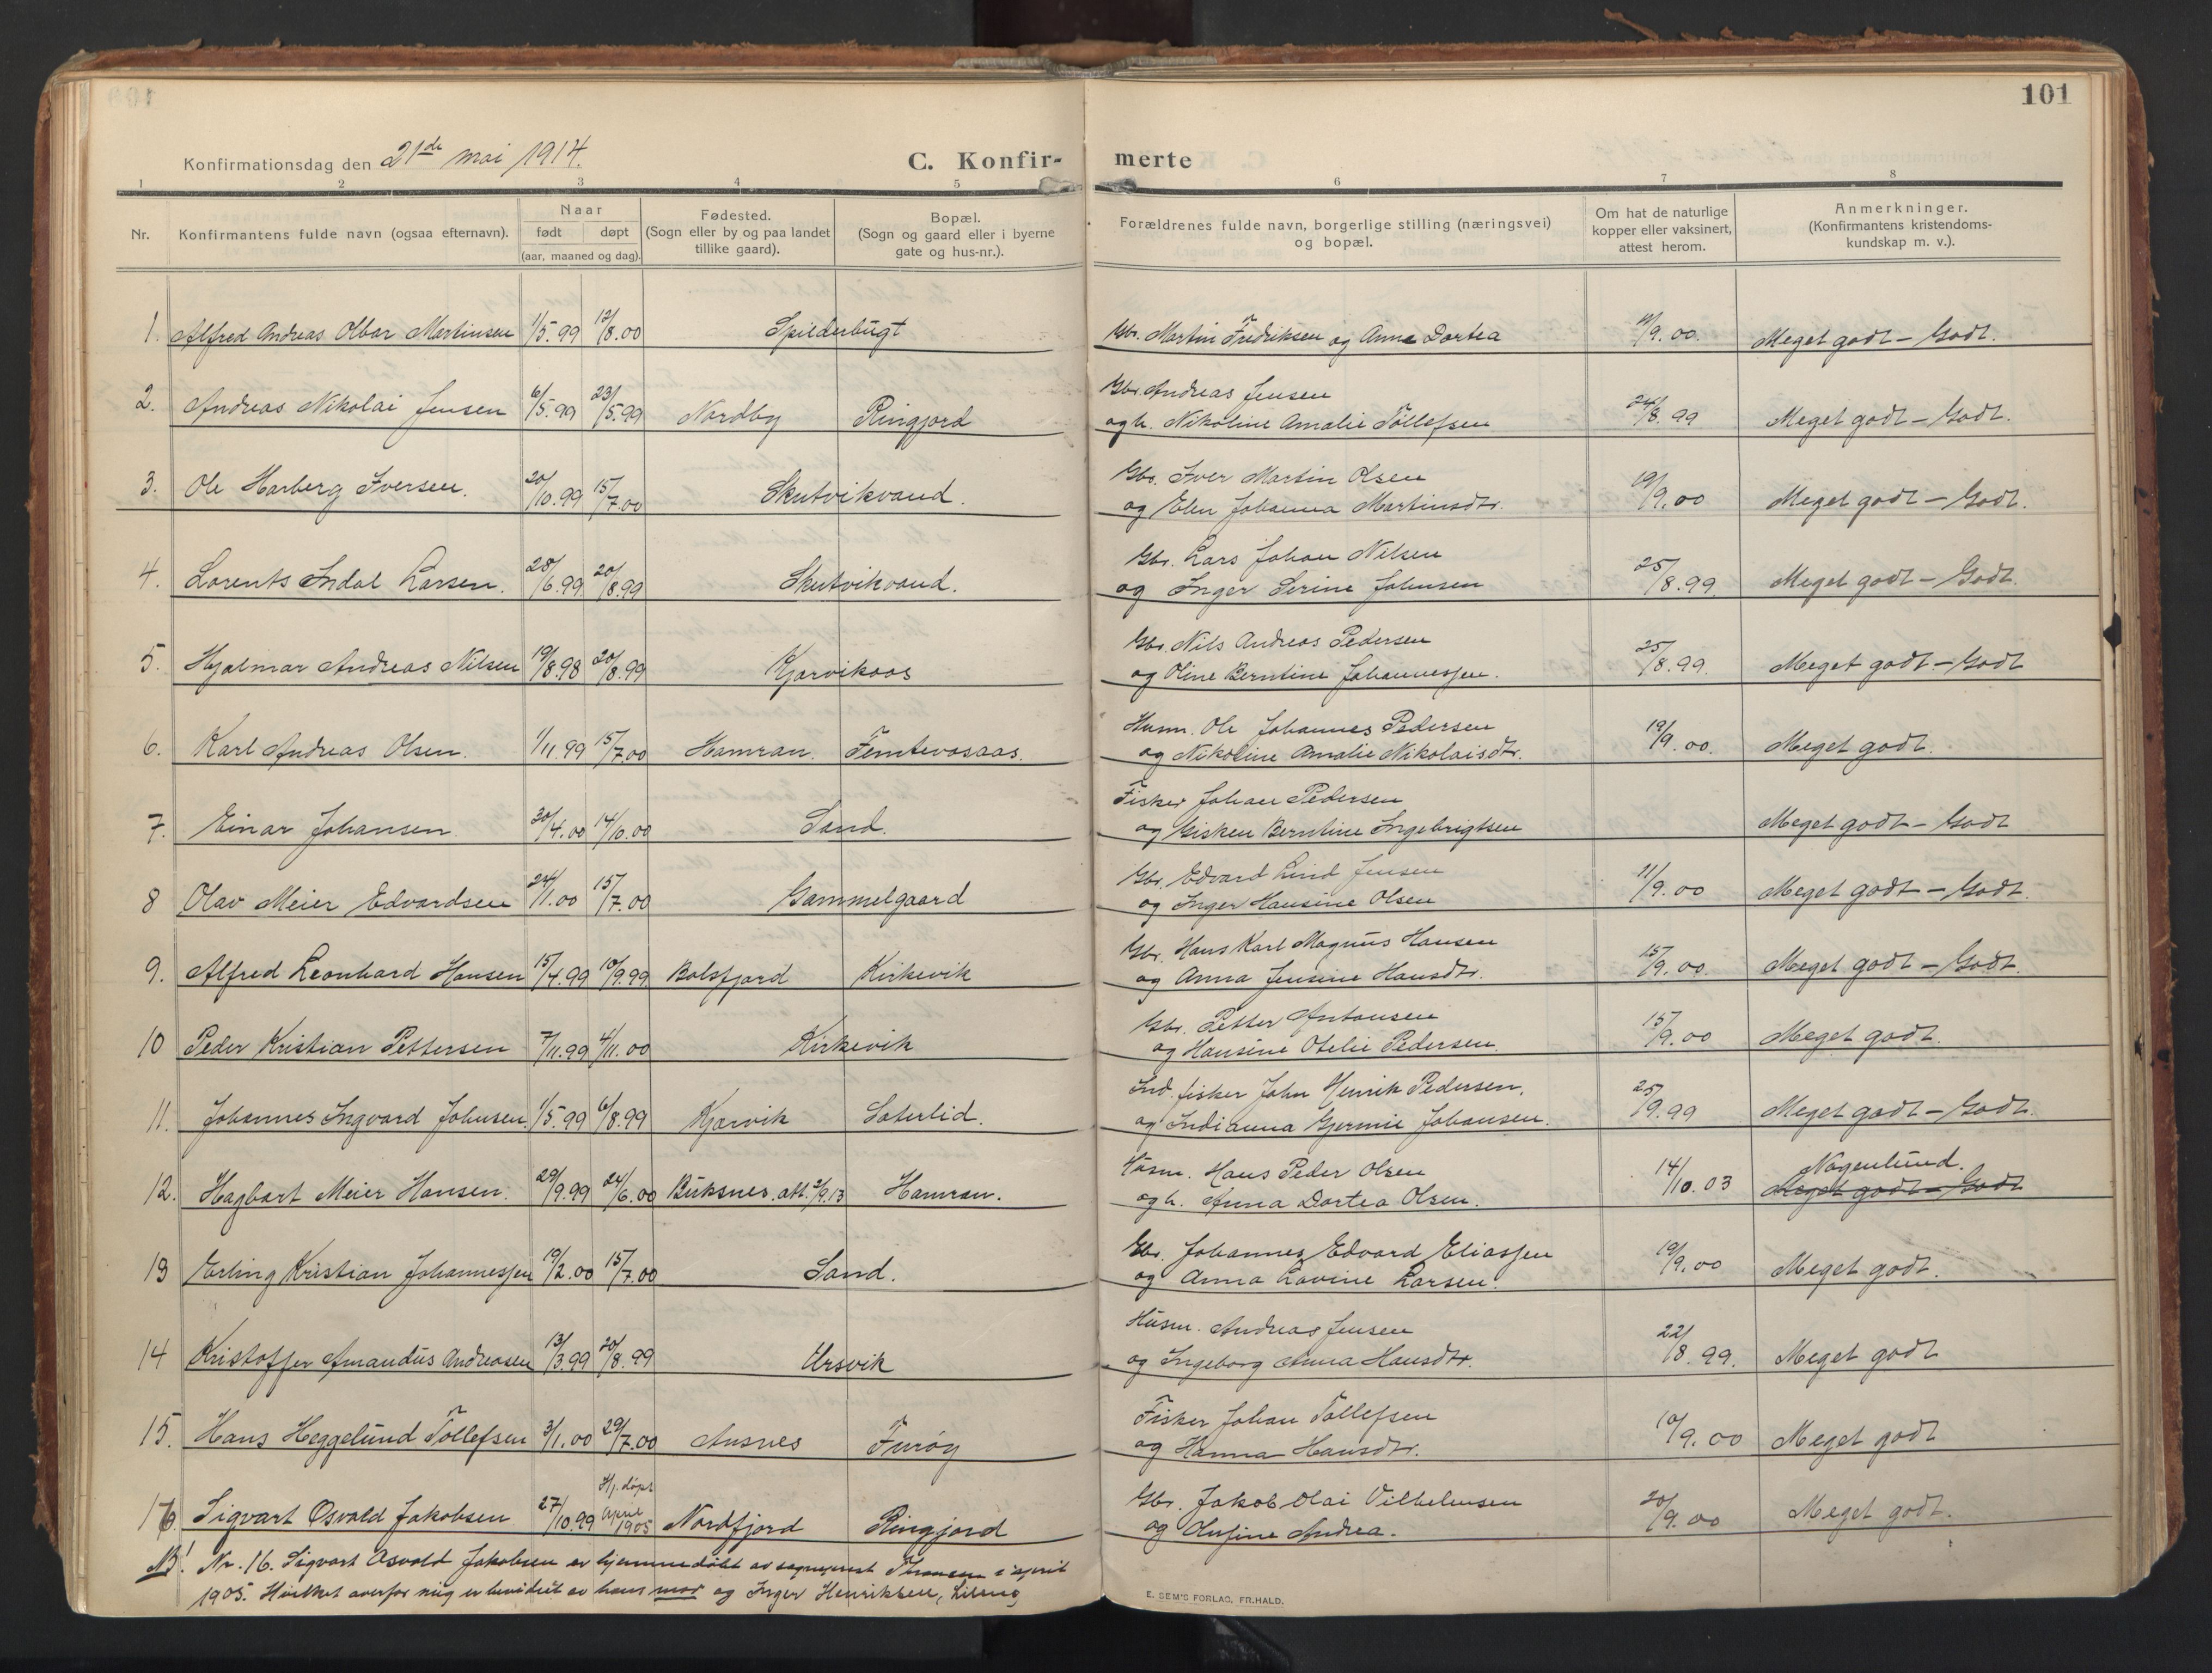 101
Konfirmationsdag den 21de mai 1914.
C. Konfir- merte
1 2 3 4 5 6 7 8
Nr.
Konfirmantens fulde navn (ogsaa efternavn).
Naar
født døpt
(aar, maaned og dag).
Fødested.
(Sogn eller by og paa landet
tillike gaard).
Bopæl.
(Sogn og gaard eller i byerne
gate og hus-nr.).
Forældrenes fulde navn, borgerlige stilling (næringsvei)
og bopæl.
Om hat de naturlige
kopper eller vaksinert,
attest herom.
Anmerkninger.
(Konfirmantens kristendoms-
kundskap m. v.).
1. Alfred Andreas Olbar Martinsen 1/5.99 12/8.00 Spilderbugt Gbr. Martin Fredriksen og Anne Dortea 11/9.00. Meget godt - Godt.
2. Andreas Nikolai Jensen 6/5.99 23/5.99 Nordby Ringjord Gbr. Andreas Jensen
og h. Nikoline Amalie Tollefsen 24/8.99 Meget godt - Godt.
3. Ole Harberg Iversen. 20/10.99 15/7.00 Skutvikvand. Gbr. Iver Martin Olsen
og Elen Johanna Martinsdtr. 19/9.00 Meget godt - Godt.
4. Lorents Indal Larsen. 28/6.99 20/8.99 Skutvikvand. Gbr. Lars Johan Nilsen
og Inger Serine Johnsen 25/8.99. Meget godt - Godt.
5. Hjalmar Andreas Nilsen 19/8.98 20/8.99 Kjarvikaas Gbr. Nils Andreas Pedersen
og Oline Berntine Johannessen. 25/8.99. Meget godt - Godt
6. Karl Andreas Olsen. 1/11.99 15/7.00 Hamran. Femtevasaas. Husm. Ole Johannes Pedersen
og Nikoline Amalie Nikolaisdtr. 19/9.00. Meget godt.
7. Einar Johansen 30/4.00 14/10.00 Sand. Fisker Johan Pedersen
og Gisken Berntine Ingebrigtsen Meget godt - Godt
8 Olav Meier Edvardsen 24/1.00 15/7.00 Gammelgaard Gbr. Edvard Lind Jensen
og Inger Hansine Olsen 11/9.00 Meget godt - Godt.
9. Alfred Leonhard Hansen 15/4.99 10/9.99 Balsfjord Kirkevik Gbr. Hans Karl Magnus Hansen
og Anna Jensine Hansdtr. 15/9.00. Meget godt - Godt.
10 Peder Kristian Pettersen 7/11.99 4/11.00 Kirkevik Gbr. Petter Antonsen
og Hansine Otelie Pedersen. 15/9.00 Meget godt.
11. Johannes Ingvard Johnsen 1/5.99 6/8.99 Kjarvik Saterlid. Ind. fisker John Henrik Pedersen,
og Indianna Gjermie Johansen. 25/9.99 Meget godt - Godt.
12. Hagbart Meier Hansen. 29/9.99 24/6.00 Buksnes. att. 2/9.13 Hamran. Husm. Hans Peder Olsen
og h. Anna Dortea Olsen. 14/10.03 Nogenlund.
Meget godt - Godt
13 Erling Kristian Johannessen 19/2.00 15/7.00 Sand. Gbr. Johannes Edvard Eliassen
og Anna Lovine Larsen. 19/9.00 Meget godt.
14 Kristoffer Amandus Andreasen 13/3.99 20/8.99 Ursvik Husm. Andreas Jensen
og Ingeborg Anna Hansdtr. 22/8.99. Meget godt
15. Hans Heggelund Tollefsen 3/1.00 29/7.00 Ansnes Furøy Fisker Johan Tollefsen
og Hanna Hansdtr. 10/9.00 Meget godt
16 Sigvart Osvald Jakobsen 27/10.99 Hj. døpt April 1905 Nordfjord Ringjord Gbr. Jakob Olai Vilhelmsen
og Olufine Andrea. 20/9.00 Meget godt.
NB! Nr. 16. Sigvart Osvald Jakobsen er hjemmedøbt av sogneprest i april
1905. Hvilket overfor mig er bevidnet av hans mor og Inger Henriksen,
E. SEM'S FORLAG, FR.HALD.